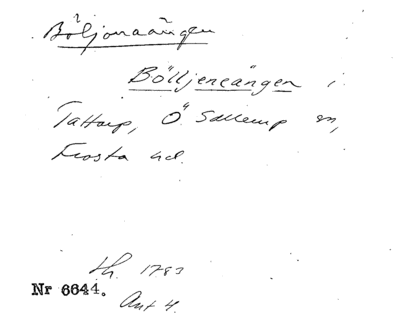 Böljonaängen
Bölljeneängen i
Tattarp, Ö Sallerup sn,
Frosta hd.
lh. 1783
Nr 6644.
Ant 4.